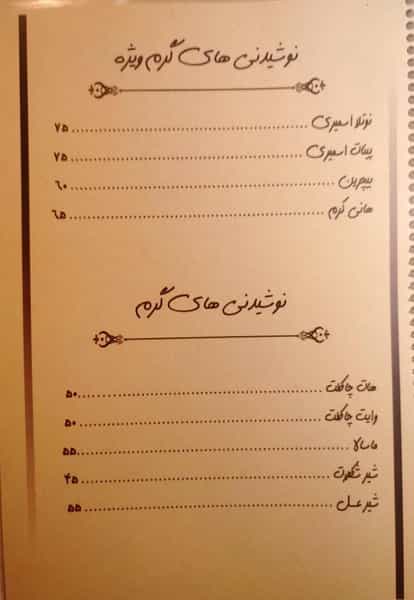 نوشیدنی های گرم ویژه
نوتلا اسپری ........................................ ۷۵
پینات اسپری ........................................ ۷۵
بیچرین ........................................ ۶۰
هانی کرم ........................................ ۶۵
نوشیدنی های گرم
هات چاکلت ........................................ ۵۰
وایت چاکلت ........................................ ۵۰
ماسالا ........................................ ۵۵
شیر نسکوت ........................................ ۴۵
شیر عسل ........................................ ۵۵